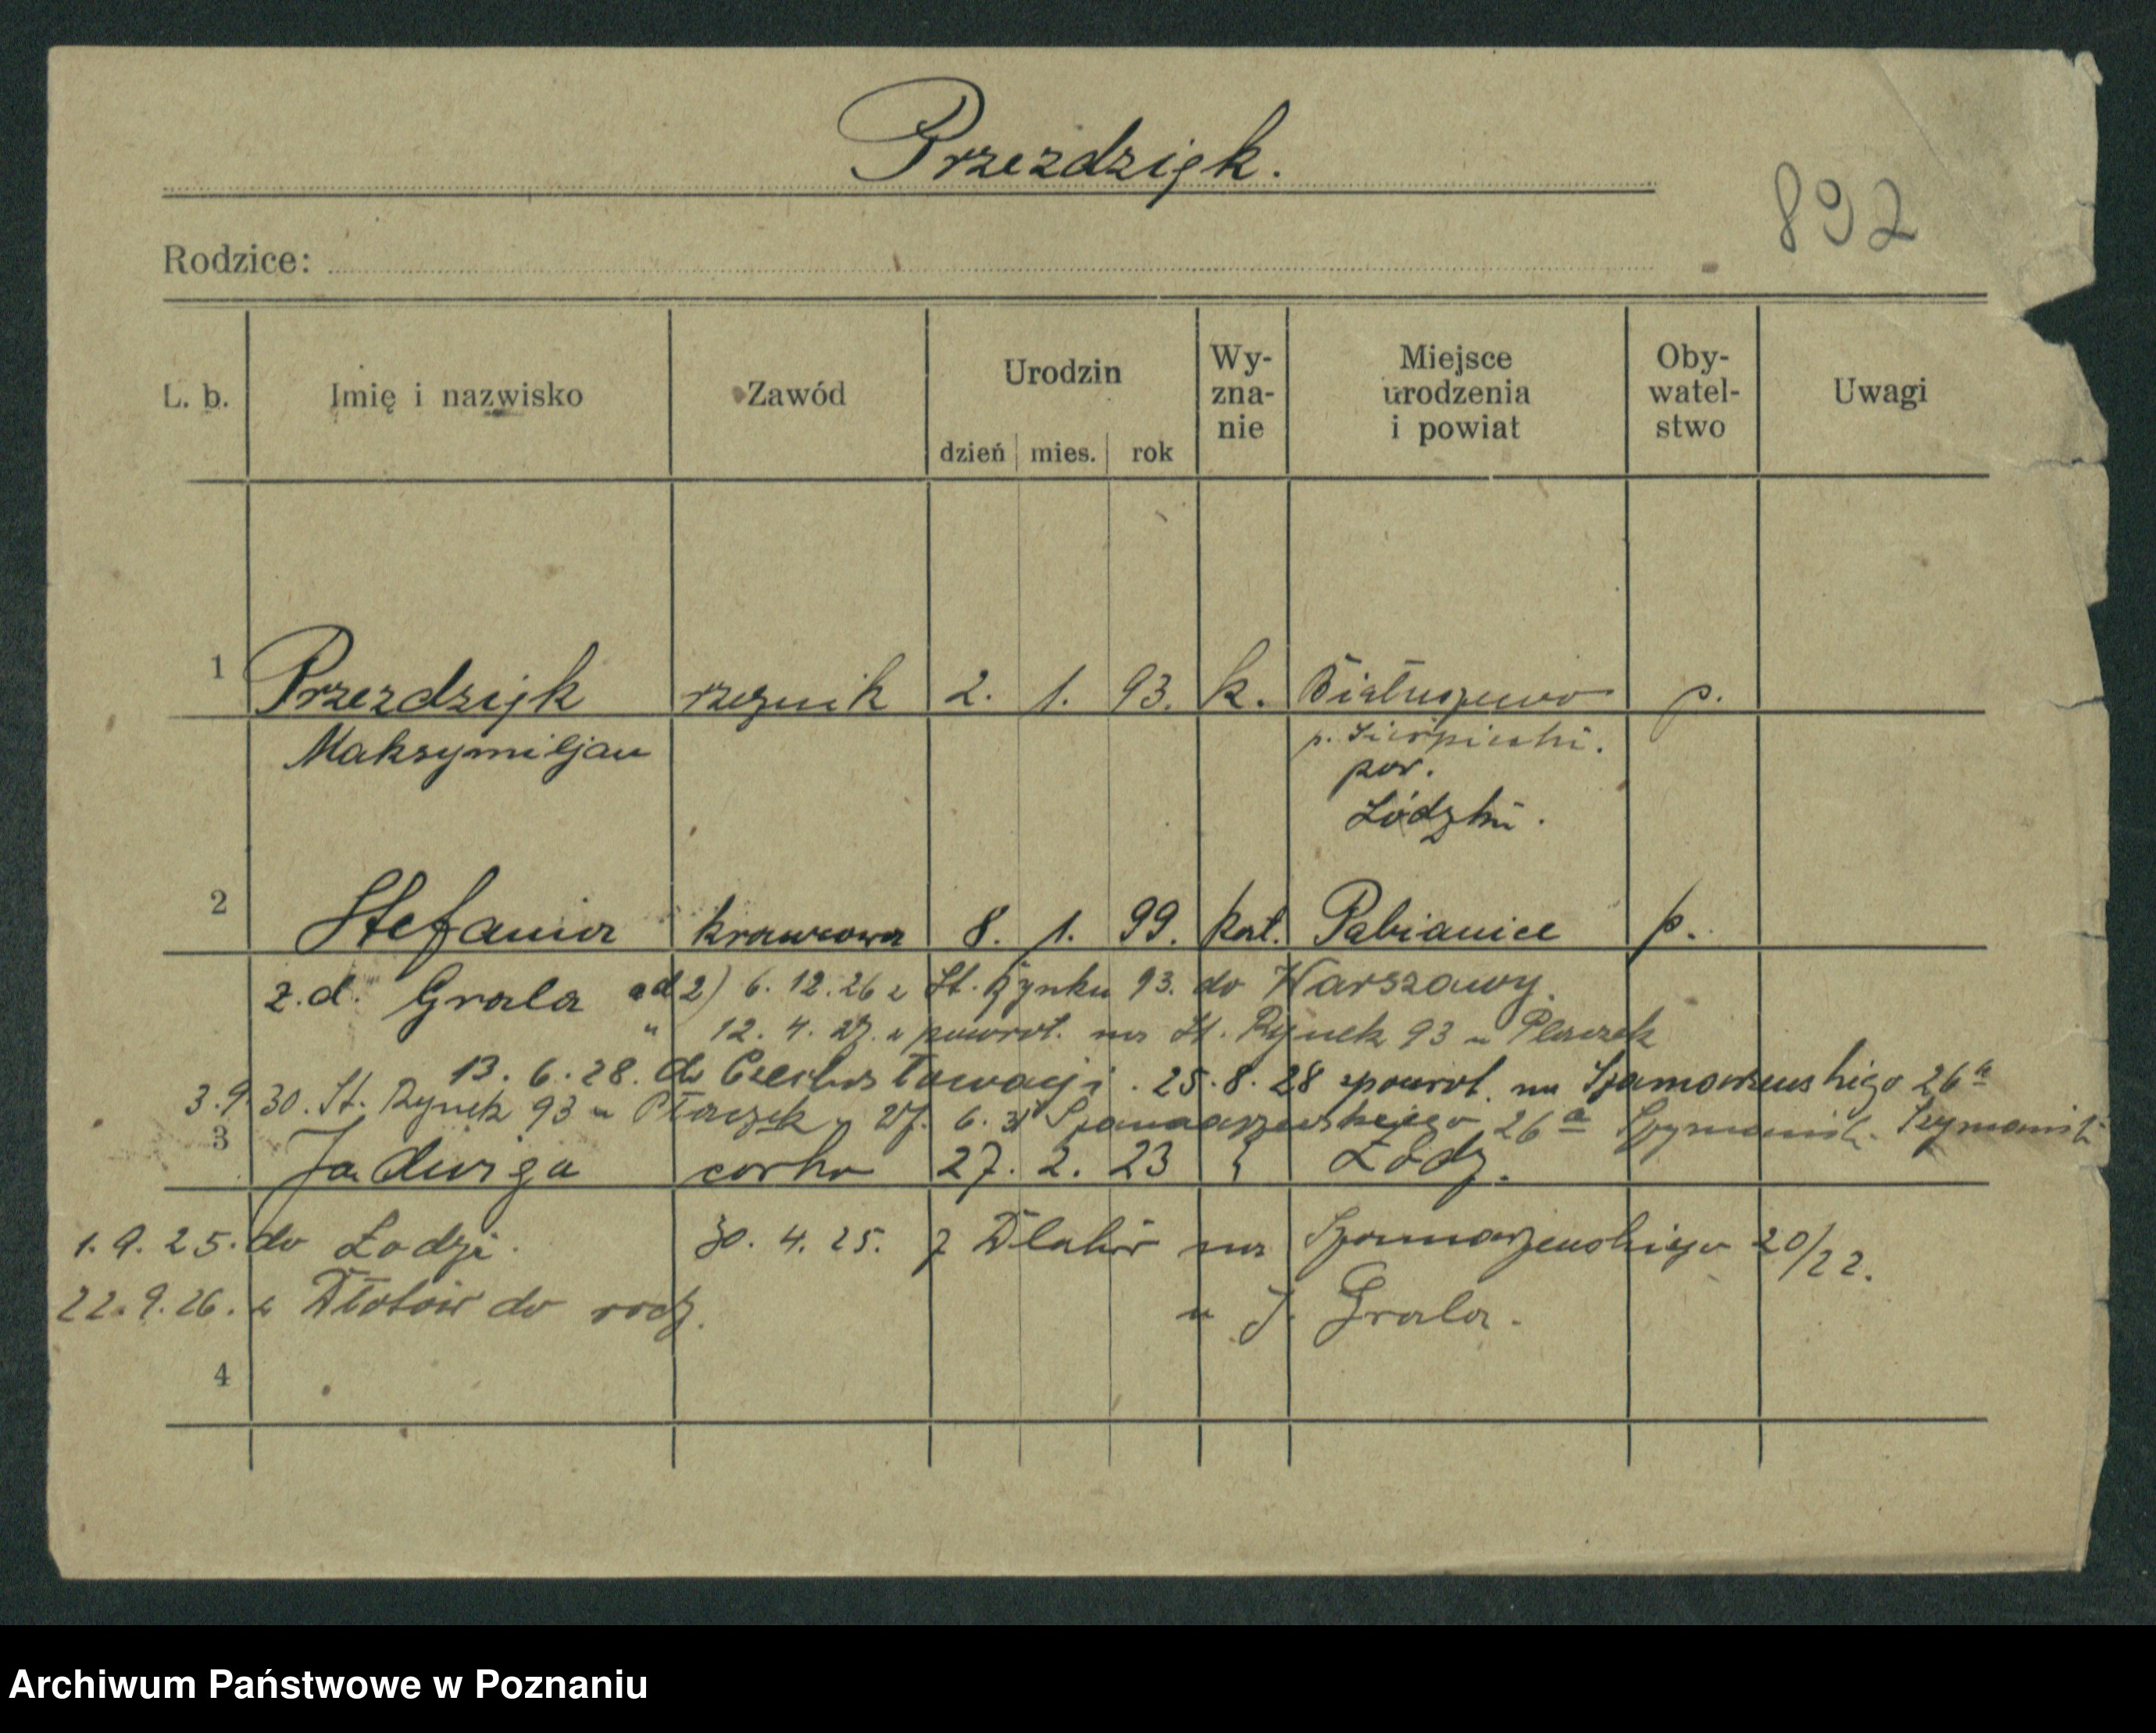 Przezdzięk.
892
Rodzice:
L. b.
Imię i nazwisko
Zawód
Urodzin
dzień mies. rok
Wy-
zna-
nie
Miejsce
urodzenia
i powiat
Oby-
watel-
stwo
Uwagi
1 Przezdzięk rzeźnik 2. 1. 93. k. p.
Maksymiljan
pow.
Łódzki.
2 Stefania krawcowa 8. 1. 99. kat. Pabianice p.
z.d. Grala ad 2) 6. 12. 26 z St. Rynku 93. do Warszawy.
" 12. 4. 27. z powrot. na St. Rynek 93 u Placzek
13. 6. 28. do Czechosłowacji. 25. 8. 28 spowrot. na Szamarzewskiego 26a
3. 9. 30. St. Rynek 93 u Płaczek 6. 31 Szamarzewskiego 26a
3 Jadwiga corka 27. 2. 23 Łódz.
1. 9. 25. do Łodzi. 30. 4. 25. z na Szamarzewskiego 20/22.
22. 9. 26. z Dłotów do rodz. u J. Grala.
4
Archiwum Państwowe w Poznaniu